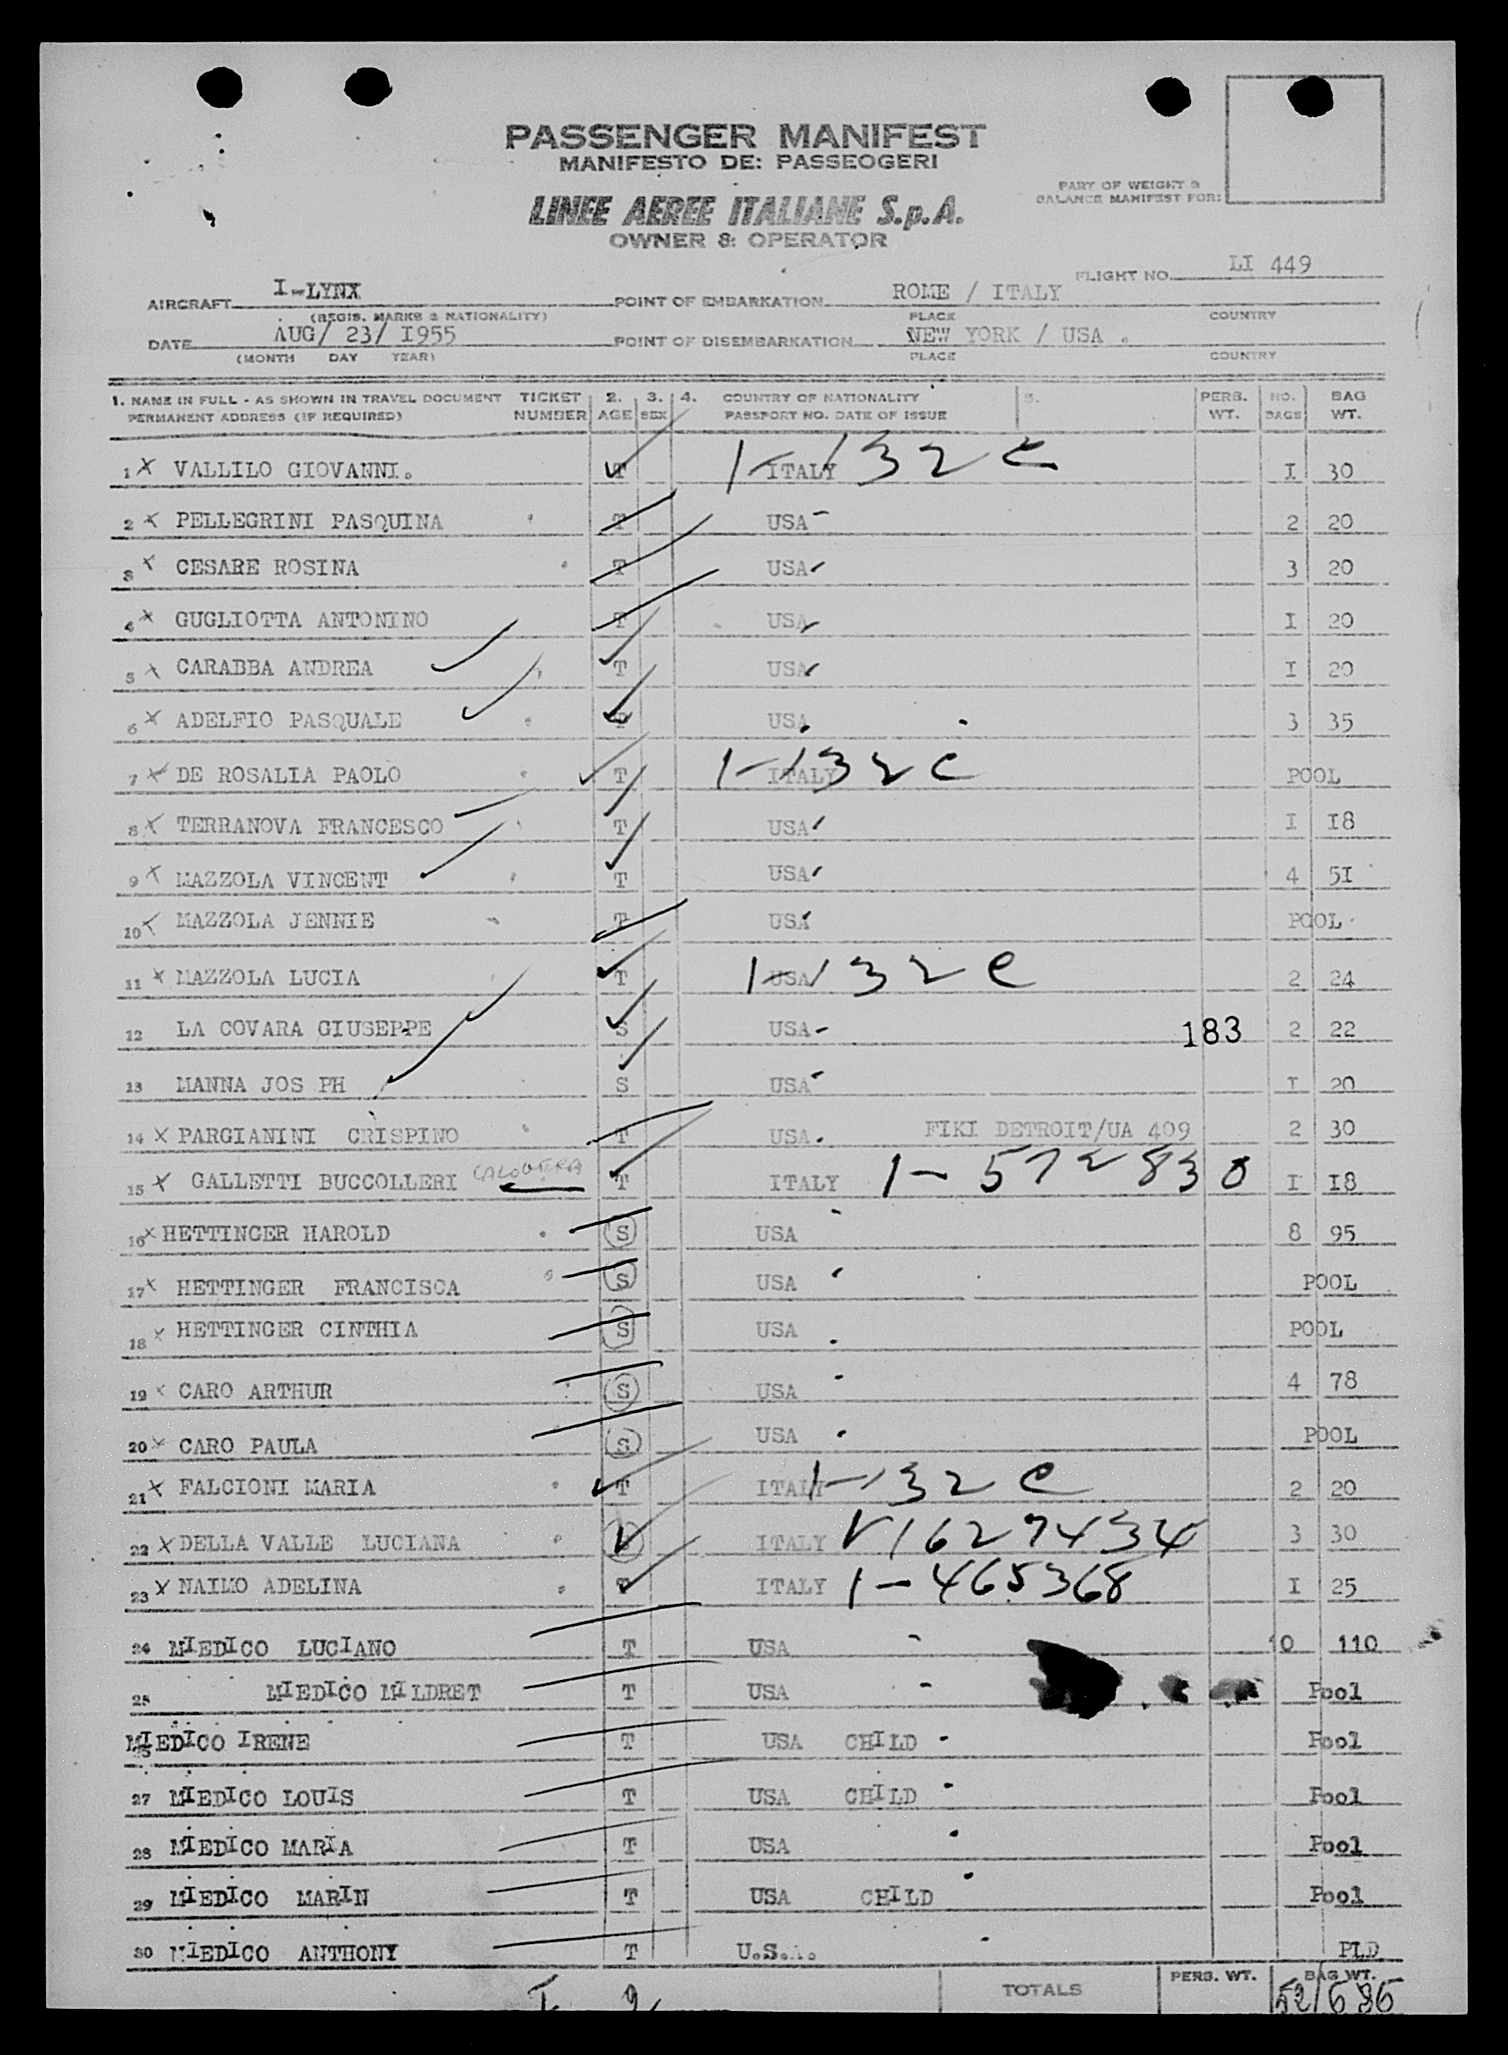 PASSENGER MANIFEST
MANIFESTO DE: PASSEOGERI
LINEE AEREE ITALIANE S.p.A.
OWNER & OPERATOR
PART OF WEIGHT &
BALANCE MANIFEST FOR:
FLIGHT NO. LI 449
AIRCRAFT I-LYNX POINT OF EMBARKATION ROME / ITALY
(REGIS. MARKS & NATIONALITY) PLACE COUNTRY
DATE AUG/ 23/ I955 POINT OF DISEMBARKATION NEW YORK / USA .
(MONTH DAY YEAR) PLACE COUNTRY
1. NAME IN FULL - AS SHOWN IN TRAVEL DOCUMENT TICKET 2. 3. 4. COUNTRY OF NATIONALITY 5. PERS. NO. BAG
PERMANENT ADDRESS (IF REQUIRED) NUMBER AGE SEX PASSPORT NO. DATE OF ISSUE WT. BAGS WT.
1 X VALLILO GIOVANNI. T ITALY 1-132 C I 30
2 X PELLEGRINI PASQUINA T USA 2 20
3 X CESARE ROSINA T USA 3 20
4 X GUGLIOTTA ANTONINO T USA I 20
5 X CARABBA ANDREA T USA I 20
6 X ADELFIO PASQUALE T USA 3 35
7 X DE ROSALIA PAOLO T ITALY 1-132 C POOL
8 X TERRANOVA FRANCESCO T USA I I8
9 X MAZZOLA VINCENT T USA 4 5I
10 X MAZZOLA JENNIE T USA POOL
11 X MAZZOLA LUCIA T USA 1-132 C 2 24
12 LA COVARA GIUSEPPE S USA 183 2 22
13 MANNA JOS PH S USA I 20
14 X PARGIANINI CRISPINO T USA. FIKI DETROIT/UA 409 2 30
15 X GALLETTI BUCCOLLERI CALOGERA T ITALY 1-572830 I I8
16 X HETTINGER HAROLD S USA 8 95
17 X HETTINGER FRANCISCA S USA POOL
18 X HETTINGER CINTHIA S USA POOL
19 X CARO ARTHUR S USA 4 78
20 X CARO PAULA S USA POOL
21 X FALCIONI MARIA T ITALY 1-132 C 2 20
22 X DELLA VALLE LUCIANA ITALY V1627434 3 30
23 X NAIMO ADELINA T ITALY 1-465368 I 25
24 MIEDICO LUCIANO T USA 10 110
25 MIEDICO MILDRET T USA Pool
MIEDICO IRENE T USA CHILD Pool
27 MIEDICO LOUIS T USA CHILD Pool
28 MIEDICO MARIA T USA Pool
29 MIEDICO MARIN T USA CHILD Pool
30 MIEDICO ANTHONY T U.S.A. PLD
TOTALS PERS. WT. BAG WT.
52/686